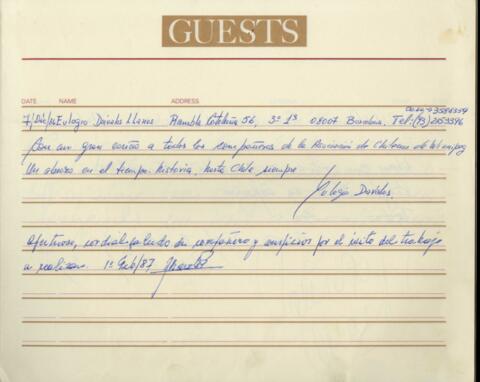 GUESTS
DATE NAME ADDRESS
7/Dic/86 Eulogio Dávalos Llanos Rambla Cataluña 56, 3º 1ª 08007 Barcelona. Tel: (93)
Con un gran cariño a todos los compañeros de la Asociación de Chilenos de Winnipeg
Un abrazo en el tiempo. historia, hasta Chile siempre
Eulogio Dávalos.
Afectuoso, cordial saludo de compañero y auspicios por el éxito del trabajo
a realizar. 1º Feb/87